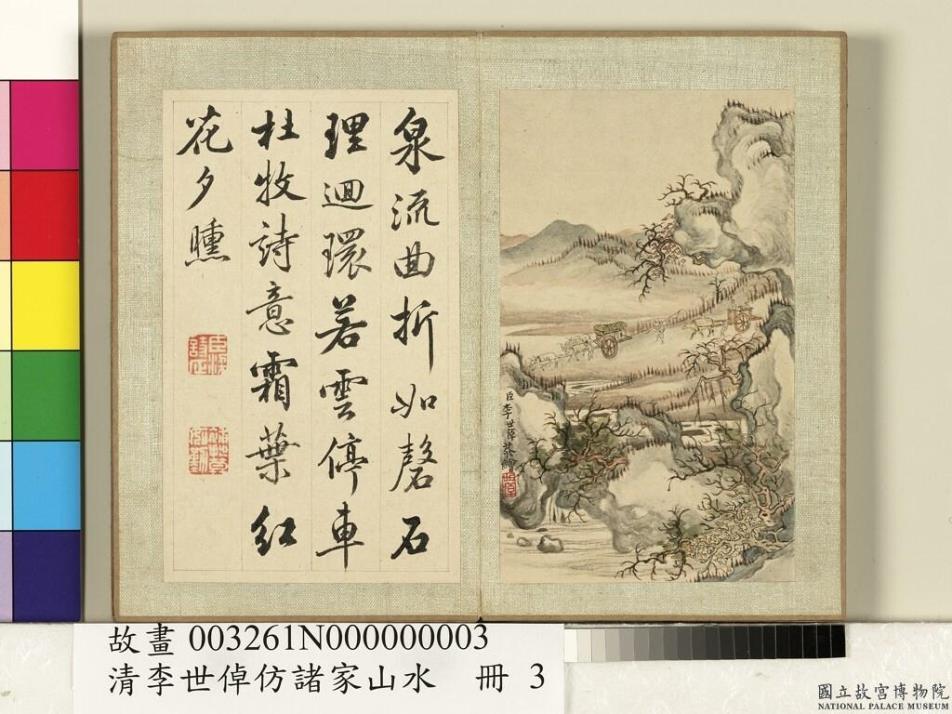 泉流曲折如磬石
理迴環若雲停車
杜牧詩意霜葉紅
花夕曛
臣李世倬恭
故畫 003261N000000003
清李世倬仿諸家山水 冊 3
國立故宮博物院
NATIONAL PALACE MUSEUM